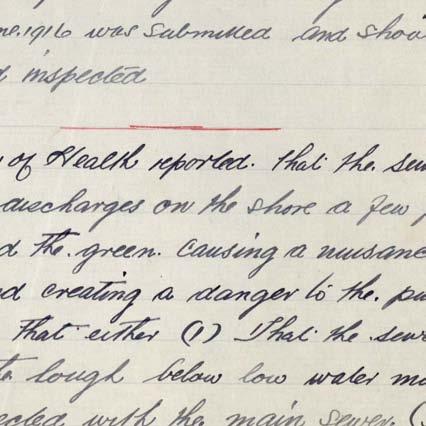 ne. 1916 was submitted and shou
d inspected
of Health reported. That the sew
discharges on the shore a few
d the green. causing a nuisanc
nd creating a danger to the. pu
That either (1) That the sewe
lough below low water ma
ected with the main sewer. (